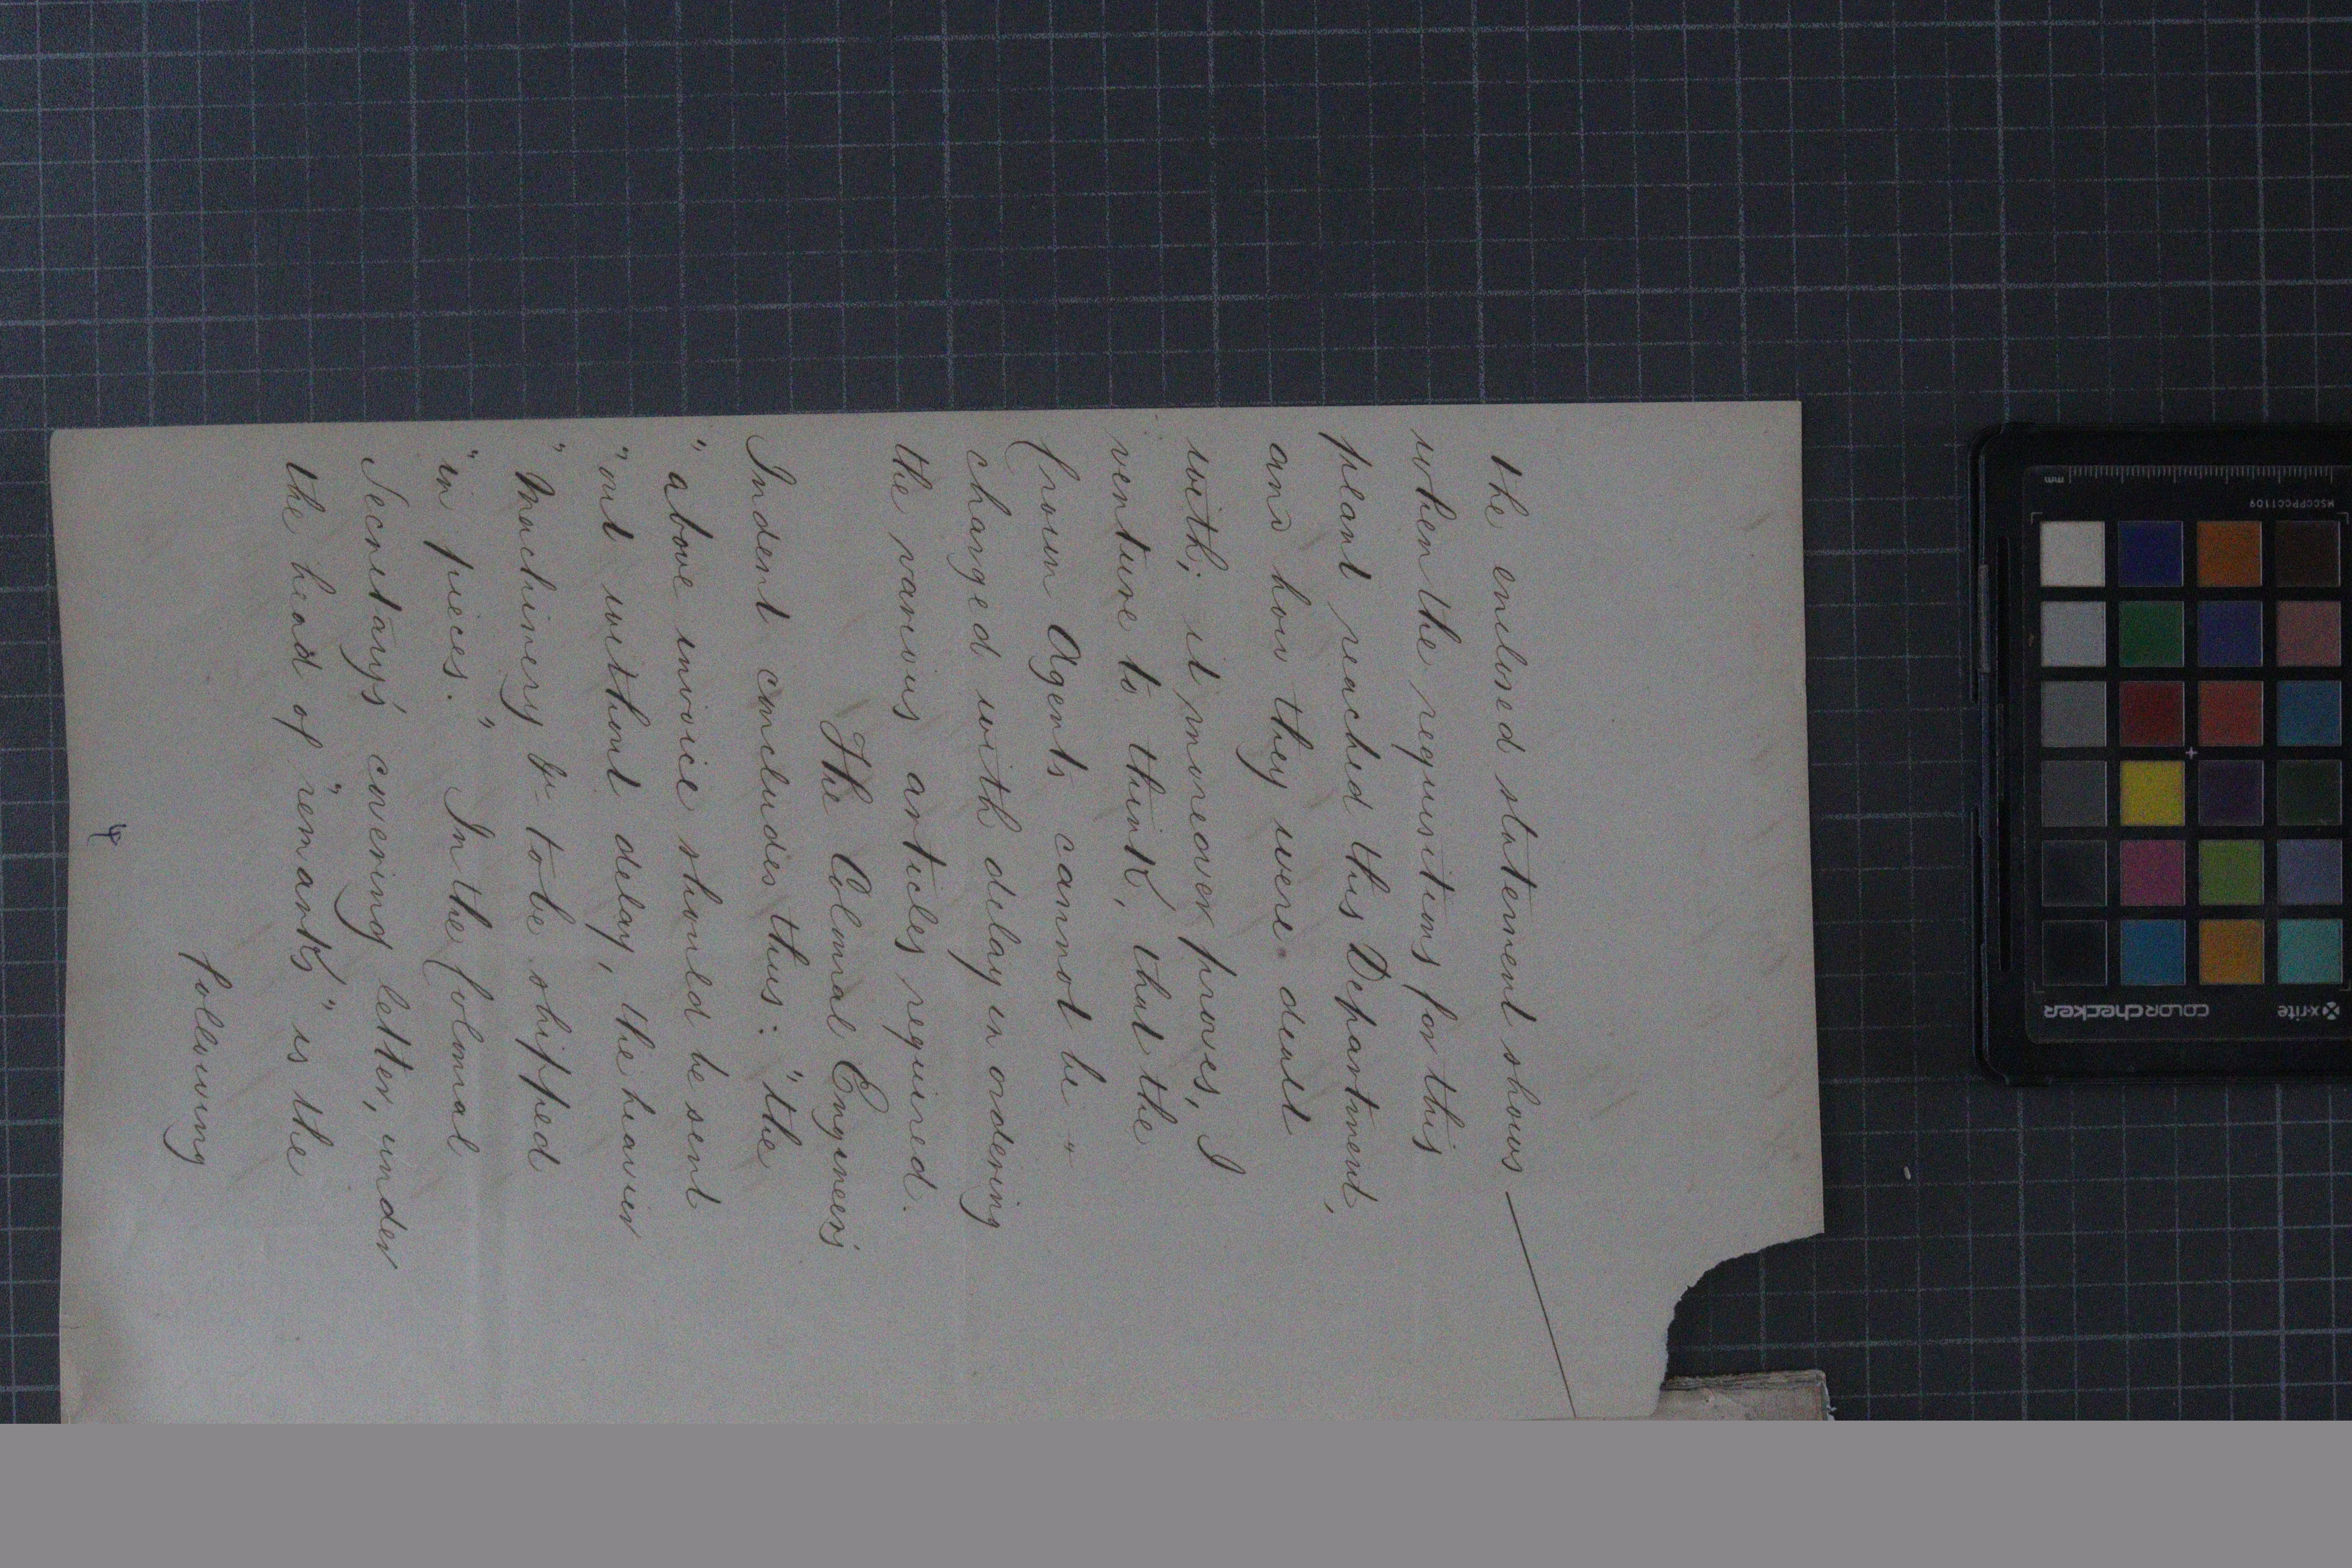 the enclosed statement shows
when the requisitions for this
plant reached this Department,
and how they were dealt
with; it moreover proves, I
venture to think, that the
Crown Agents cannot be "
charged with delay in ordering
the various articles required.
The Colonial Engineers
Indent concludes thus: "the
" above invoice should be sent
" out without delay, the heavier
" Machinery &c to be shipped
" in pieces." In the Colonial
Secretary's covering letter, under
the head of "remarks" is the
following
4
mm
MSCCPPCC1109
x-rite
colorchecker